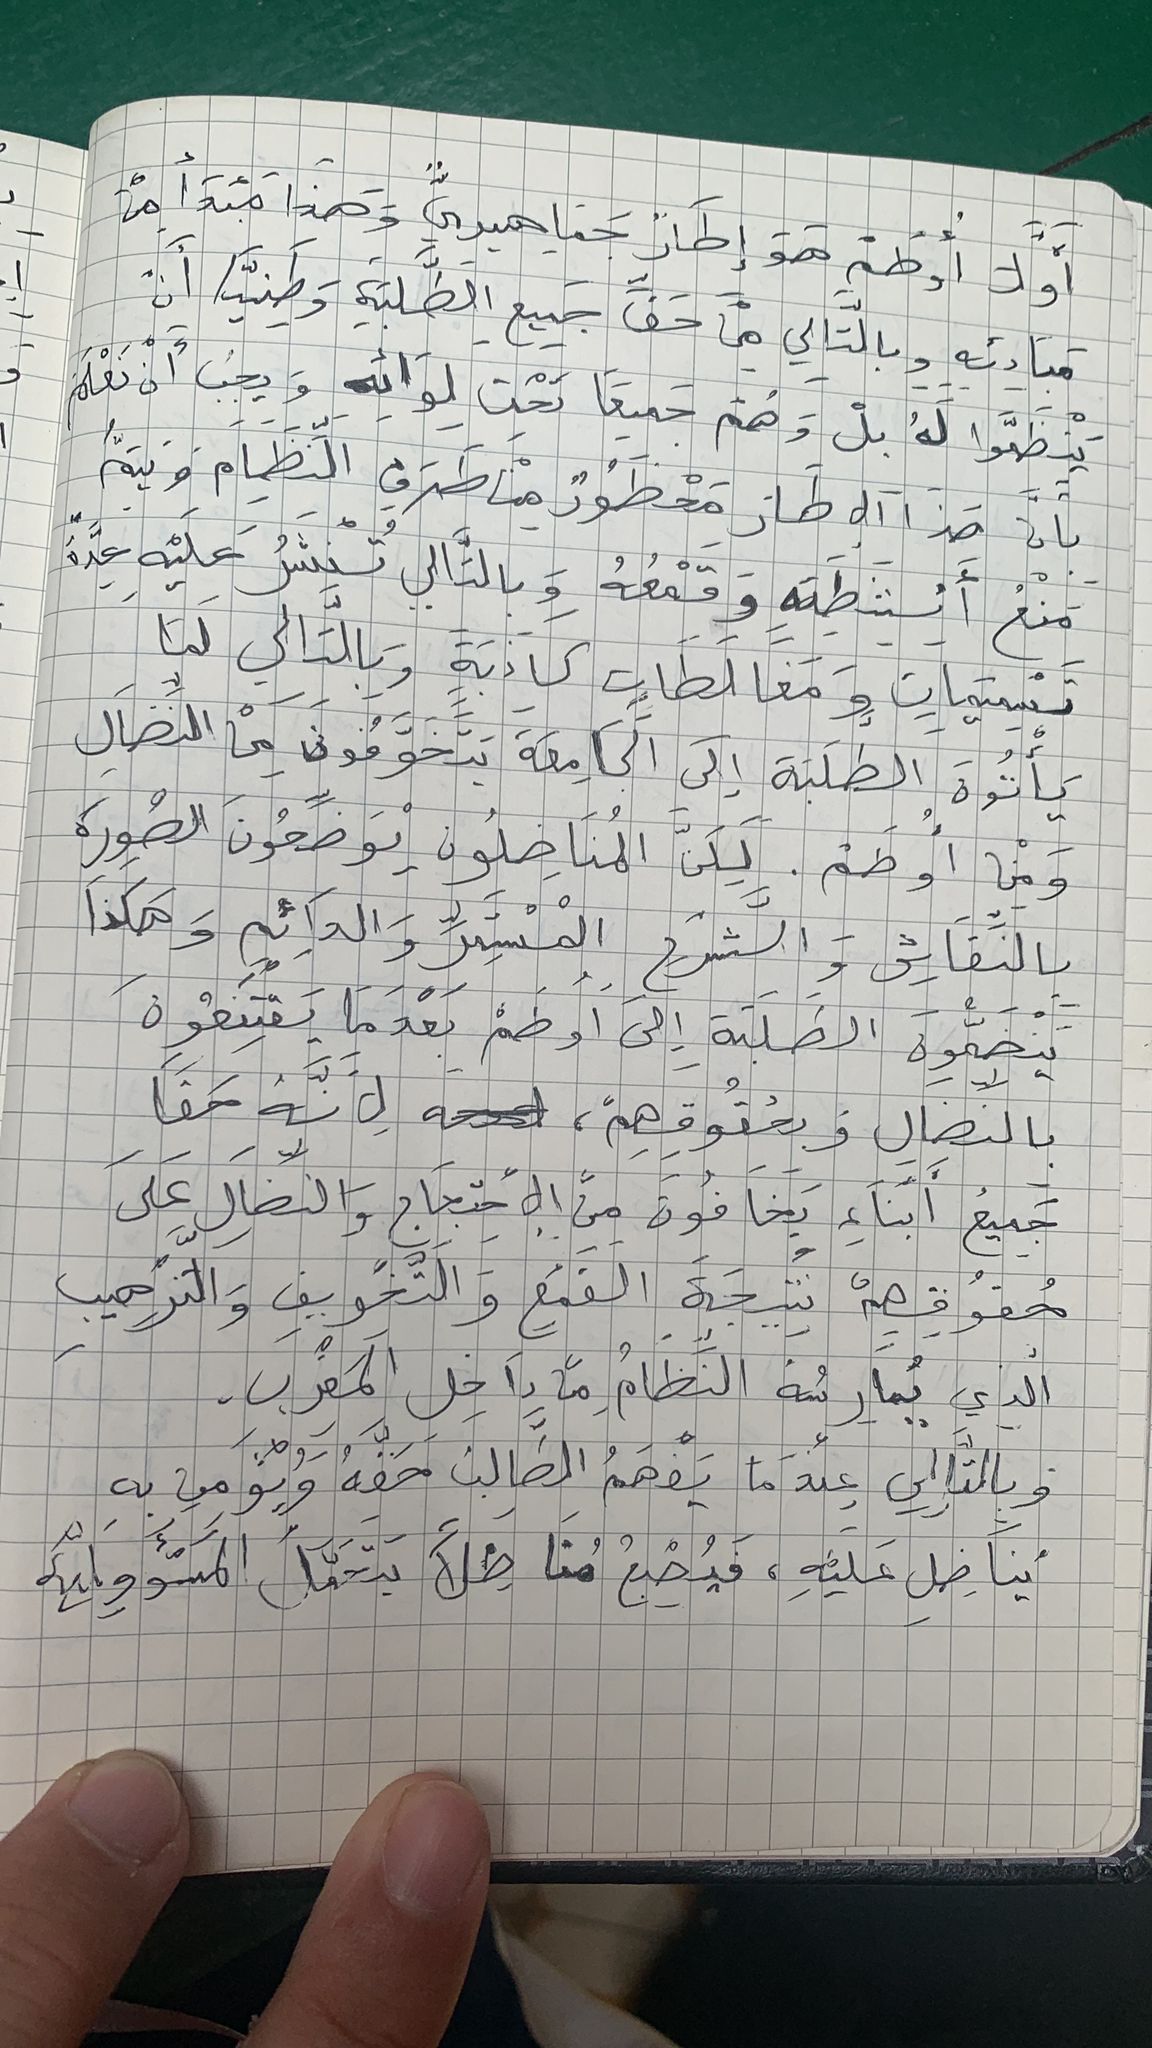 أَوَّلاً أُوطَمْ هُوَ إِطَارٌ جَمَاهِيرِيٌّ وَهَذَا مَبْدَأ مِنْ
مَبَادِئِهِ وبالتَّالي مِنْ حَقِّ جَمِيعِ الطَّلَبَةِ وَطَنِيًّا أَنْ
يَنْظَمُّوا لَهُ بلْ وَهُمْ جَمِيعًا تَحْتَ لِوَائِهِ وَيجِبُ أَنْ نَعْلَمَ
بأنَّ هَذَا الإطَار مَحْظُورٌ مِنْ طَرَفِ النِّظَامِ وَيَتِمُّ
مَنْعُ أَنْشِطَتِهِ وَقَمْعُهُ وَبالتَّالي تُنْشَرُ عَلَيْهِ عِدَّةُ
تَسْمِيَاتٍ وَمَغَالَطَاتٍ كَاذِبَةٍ وَبِالتَّالي لَمَّا
يَأْتُونَ الطلَبَة إلَى الجَامِعَةِ يَتَخَوَّفُونَ مِنْ النِّضَالِ
وَمِنْ أُوطَمْ. لَكِنَّ المُنَاضِلُون يُوَضِّحُونَ الصُّورَة
بِالنِّقَاشِ وَالشَّرْحِ المُسْتَمِرِّ وَالدَائِمِ وَهَكَذَا
يَنْضَمُّونَ الطَلَبَة إِلَى أُوطَمْ بَعْدَمَا يَقْتَنِعُونَ
بالنضالِ وَبحُقُوقِهِمْ، لِأَنَّهُ حَقًّا
جَمِيعُ أَبْنَاءِ يَخَافُونَ مِنَ الإحْتِجَاجِ وَالنِّضَالِ عَلَى
حُقوُقِهِمْ نَتِيجَةَ القَمْعِ وَالتَّخْوِيفِ وَالتَّرْهِيب
الذِي يُمَارِسُهُ النِّظَامُ دَاخِل المَغْرِب.
وَبالتَّالِي عِنْدَمَا يَفْهَمُ الطَّالِبُ حَقَّهُ وَيُؤْمِن بِهِ
يُنَاضِل عَلَيْهِ، فَيُصْبِحُ مُنَاضِلاً يَتَحَمَّلُ المَسْؤُولِيَّة